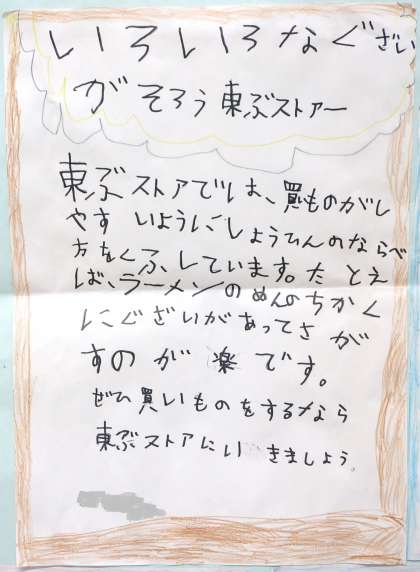 いろいろなぐざい
がそろう東ぶストアー
東ぶストアでは、買ものがし
やすいようにしょうひんのならべ
方をくふしています。たとえ
ば、ラーメンのめんのちかく
にぐざいがあってさが
すのが楽です。
ぜひ買いものをするなら
東ぶストアにいきましょう。